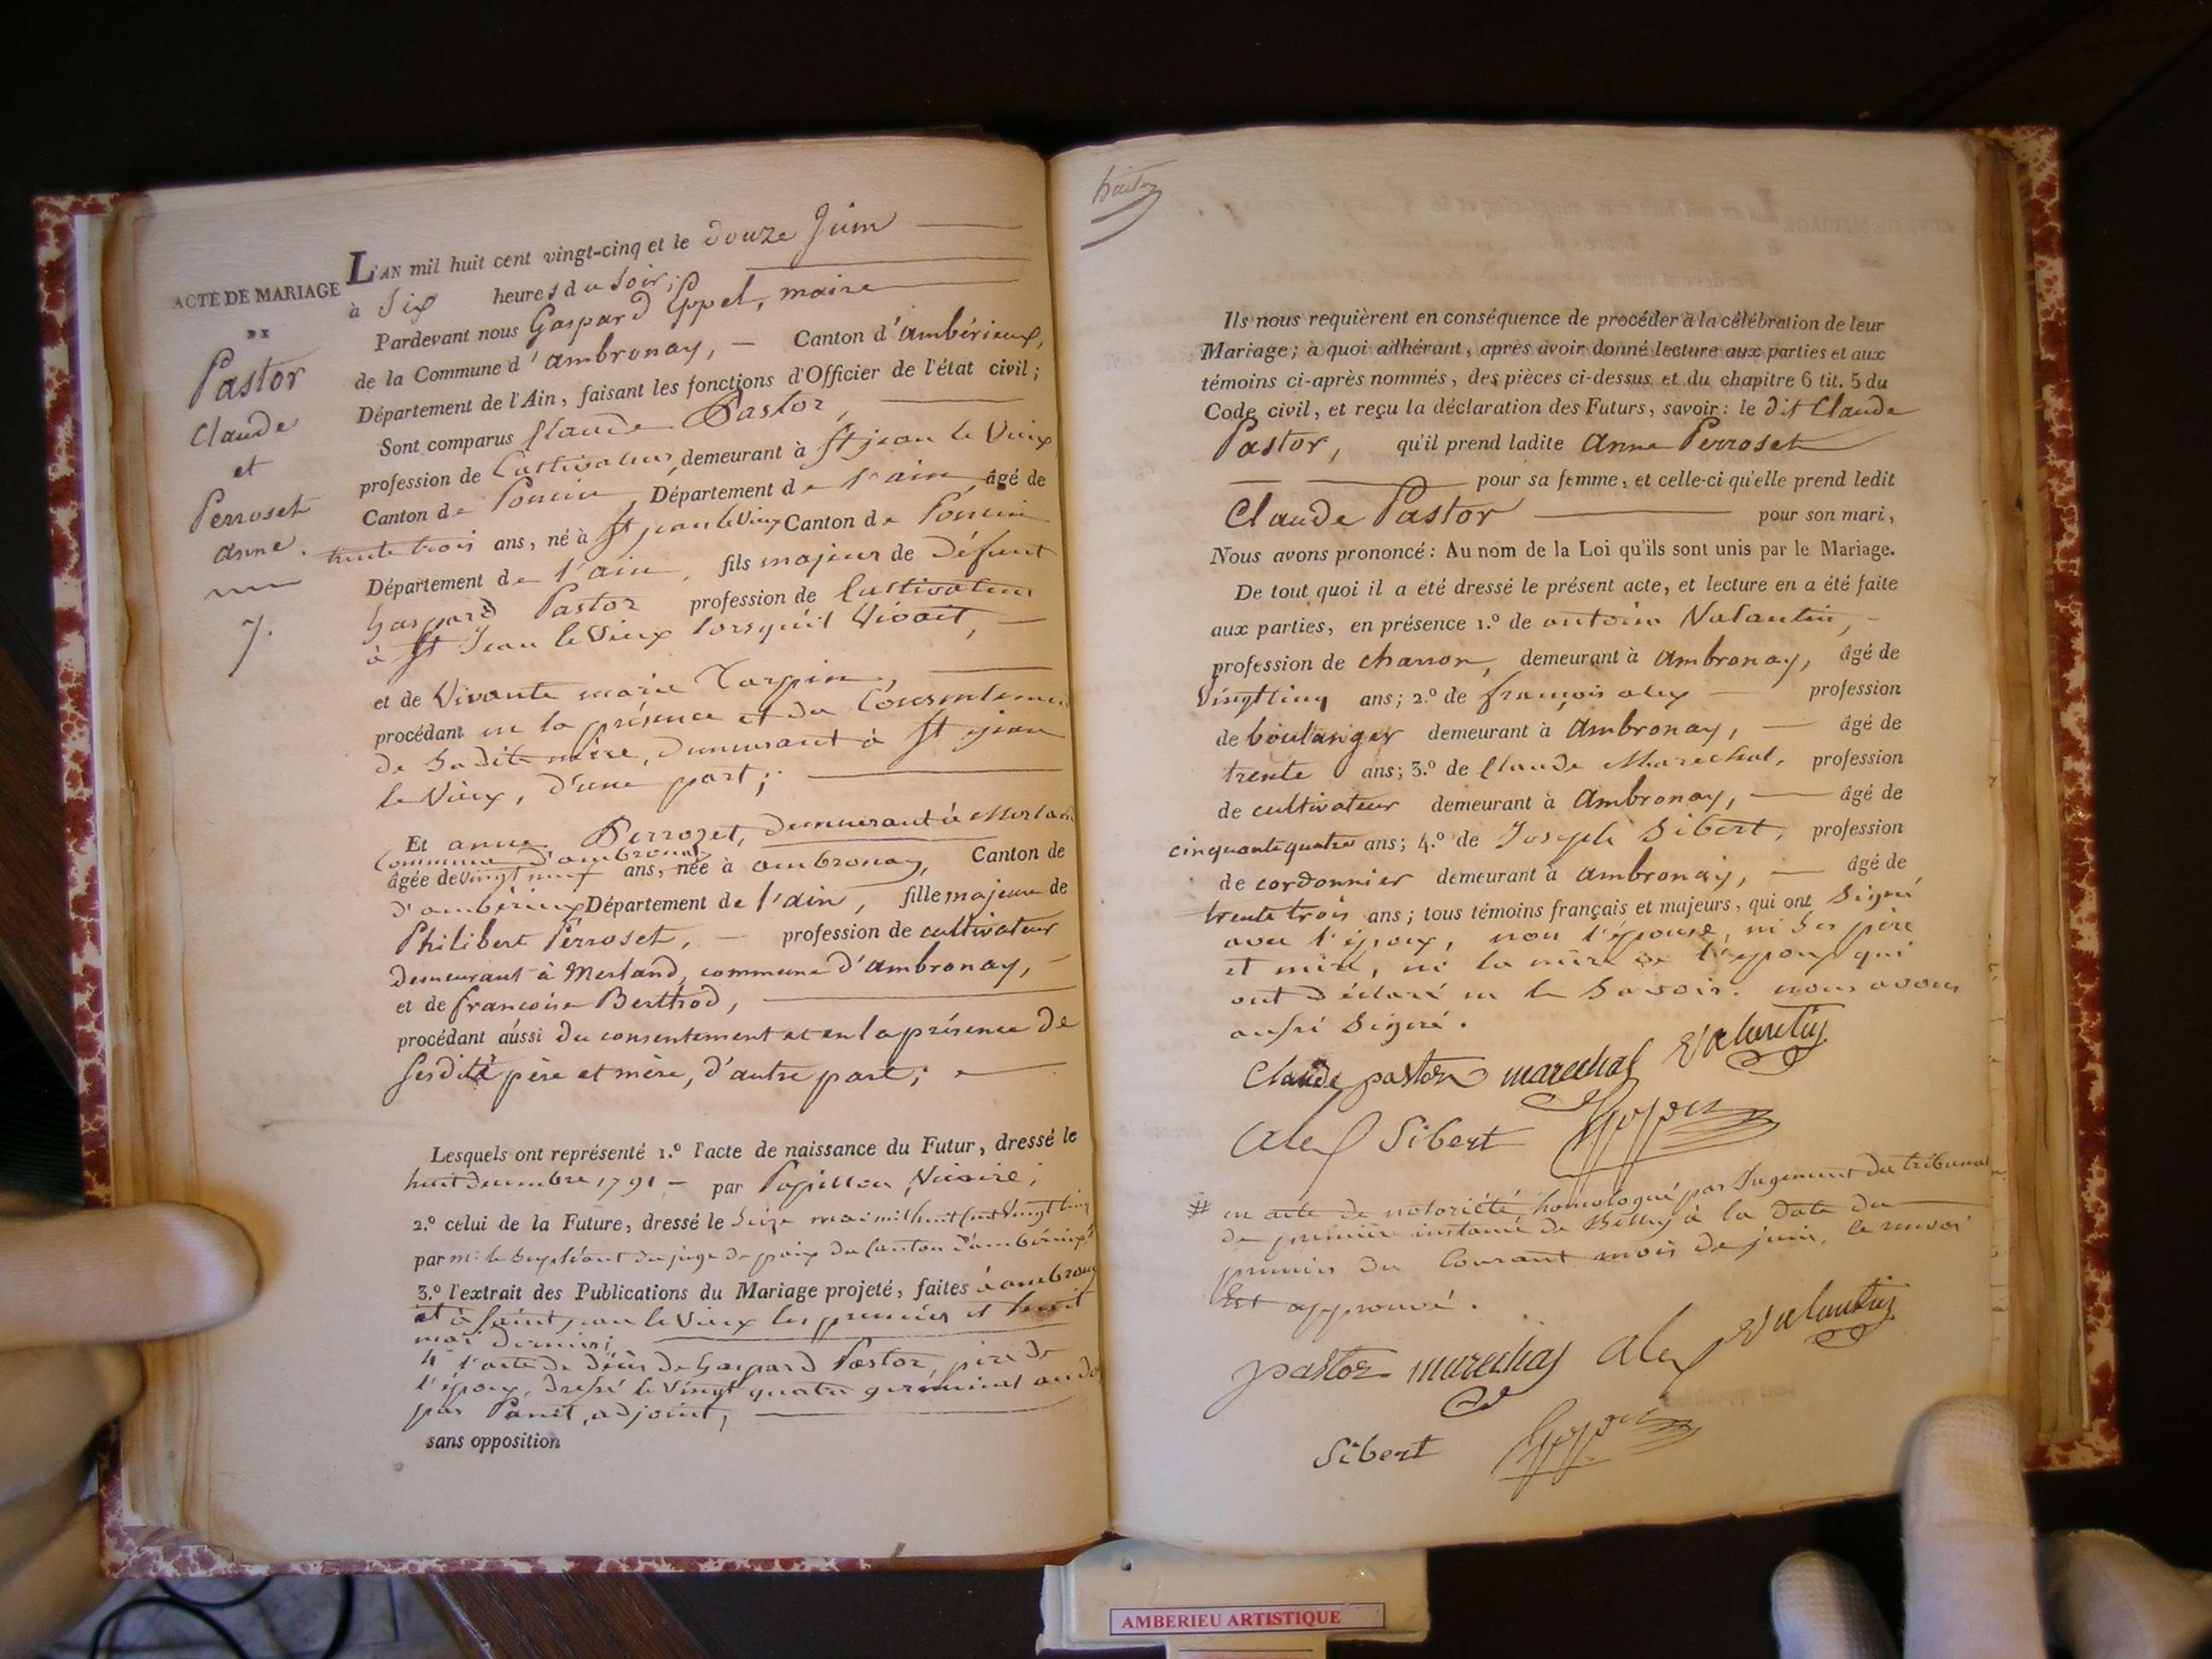 ACTE DE MARIAGE
DE
Pastor
Claude
et
Perroset
anne.
7.
L'AN mil huit cent vingt-cinq et le douze Juin
à Six heures du Soir;
Pardevant nous Gaspard Eppel, maire
de la Commune d'ambronay, — Canton d'ambérieux,
Département de l'Ain, faisant les fonctions d'Officier de l'état civil;
Sont comparus Claude Pastor,
profession de Cultivateur, demeurant à St jean le Vieux
Canton de Poncin, Département de l'ain, âgé de
trente trois ans, né à St jean le Vieux Canton de Poncin
Département de l'ain, fils majeur de Défunt
Gaspard Pastor profession de Cultivateur
à St Jean le Vieux lorsqu'il Vivait,
et de Vivante marie Tarpin,
procédant en la présence et du Consentement
de Sa dite mère, demeurant à St jean
le Vieux, d'une part;
Et anne Perrozet, demeurant à Merland
Commune d'ambronay
âgée de Vingt neuf ans, née à ambronay, Canton de
d'ambérieux Département de l'ain, fille majeure de
Philibert Perroset, — profession de cultivateur
demeurant à Merland, commune d'ambronay,
et de francoise Berthod,
procédant aussi du consentement et en la présence de
Sesdits père et mère, d'autre part;
Lesquels ont représenté 1.º l'acte de naissance du Futur, dressé le
huit decembre 1791 — par Papillon, Vicaire;
2.º celui de la Future, dressé le Seize mai mil huit cent Vingt cinq
par m. le Supléant du juge de paix du Canton d'ambérieux #
3.º l'extrait des Publications du Mariage projeté, faites à ambronay
et à Saint jean le Vieux les premier et huit
mai dernier;
4º l'acte de décès de Gaspard Pastor, père de
l'époux, dressé le Vingt quatre germinal an
par Panet, adjoint,
sans opposition
Ils nous requièrent en conséquence de procéder à la célébration de leur
Mariage; à quoi adhérant, après avoir donné lecture aux parties et aux
témoins ci-après nommés, des pièces ci-dessus et du chapitre 6 tit. 5 du
Code civil, et reçu la déclaration des Futurs, savoir: le dit Claude
Pastor, qu'il prend ladite anne Perroset
pour sa femme, et celle-ci qu'elle prend ledit
Claude Pastor pour son mari,
Nous avons prononcé: Au nom de la Loi qu'ils sont unis par le Mariage.
De tout quoi il a été dressé le présent acte, et lecture en a été faite
aux parties, en présence 1.º de antoine Valantin, —
profession de charron, demeurant à ambronay, âgé de
Vingt cinq ans; 2.º de françois alex — profession
de boulanger demeurant à ambronay, — âgé de
trente ans; 3.º de Claude Marechal, profession
de cultivateur demeurant à ambronay, — âgé de
cinquante quatre ans; 4.º de Joseph Sibert, profession
de cordonnier demeurant à ambronay, — âgé de
trente trois ans; tous témoins français et majeurs, qui ont Signé
avec l'époux, non l'épouse, ni Ses père
et mère, ni la mère de l'époux qui
ont déclaré ne le Savoir. nous avons
aussi Signé.
Claude pastor marechal Valantin
Alex Sibert
# en acte de notoriété homologué par Jugement du tribunal
de première instance de Belley à la date du
premier du Courant mois de juin, le renvoi
Est approuvé.
pastor marechal alex Valantin
Sibert
AMBERIEU ARTISTIQUE